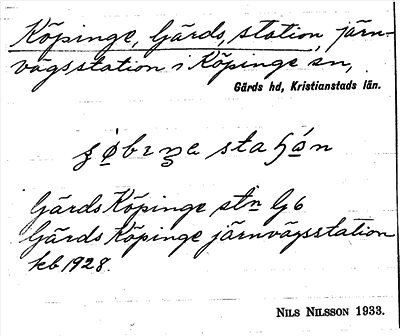 Köpinge, Gärds, station, järn-
vägsstation i Köpinge sn,
Gärds hd, Kristianstads län.
Gärds Köpinge stn G6
Gärds Köpinge järnvägsstation
kb 1928.
NILS NILSSON 1933.